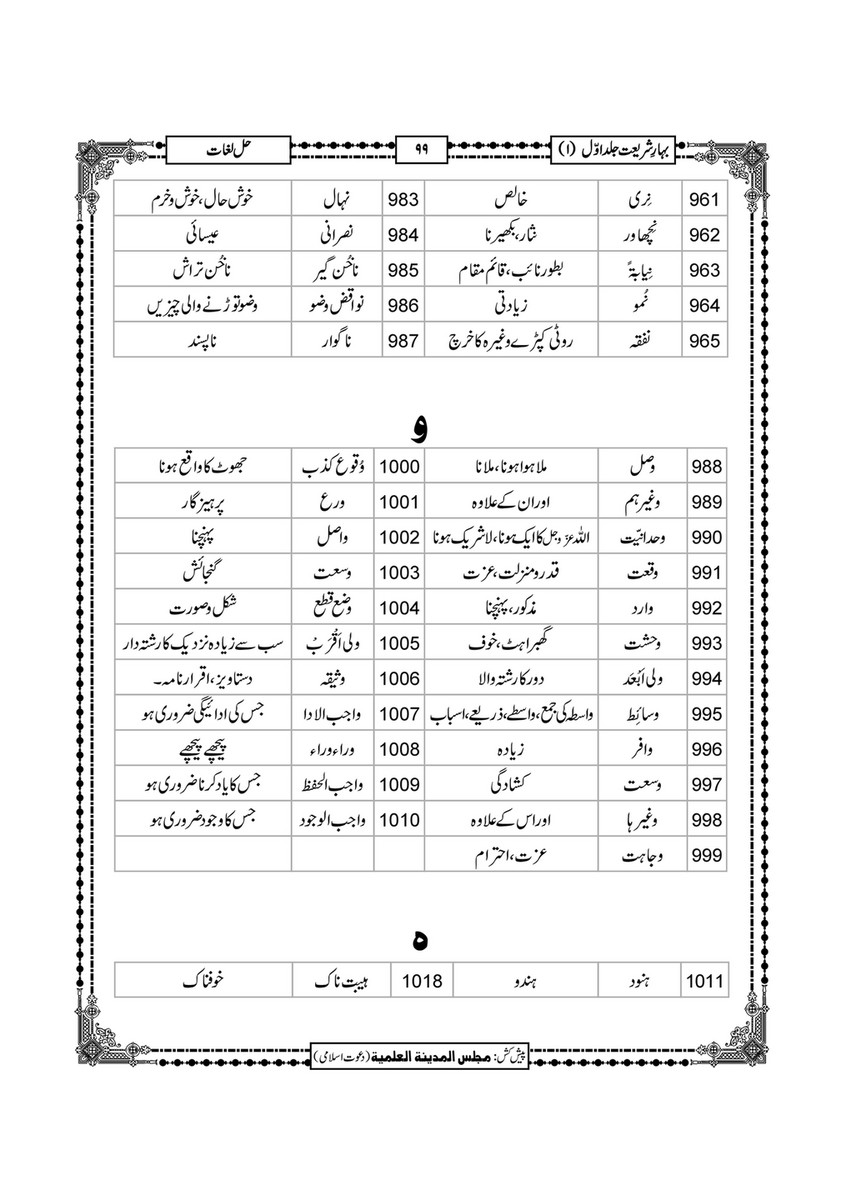 بہارِشریعت جلد اوّل (۱) ۹۹ حل لغات
961 نِری خالص 983 نہال خوش حال، خوش وخرم
962 نچھاور نثار، بکھیرنا 984 نصرانی عیسائی
963 نِیابۃً بطور نائب، قائم مقام 985 ناخُن گیر ناخُن تراش
964 نُمو زیادتی 986 نواقض وضو وضو توڑنے والی چیزیں
965 نفقہ روٹی کپڑے وغیرہ کا خرچ 987 ناگوار ناپسند
و
988 وصل ملا ہوا ہونا، ملانا 1000 وُقوع کذب جھوٹ کا واقع ہونا
989 وغیرہم اور ان کے علاوہ 1001 ورع پرہیز گار
990 وحدانیّت اللہ عزوجل کا ایک ہونا، لاشریک ہونا 1002 واصل پہنچنا
991 وقعت قدر ومنزلت، عزت 1003 وسعت گنجائش
992 وارد مذکور، پہنچنا 1004 وضع قطع شکل وصورت
993 وحشت گھبراہٹ، خوف 1005 ولی اَقْرَبْ سب سے زیادہ نزدیک کا رشتہ دار
994 ولی اَبْعَد دور کا رشتہ والا 1006 وثیقہ دستاویز، اقرار نامہ۔
995 وسائِط واسطہ کی جمع، واسطے، ذریعے، اسباب 1007 واجب الادا جس کی ادائیگی ضروری ہو
996 وافر زیادہ 1008 وراء وراء پیچھے پیچھے
997 وسعت کشادگی 1009 واجب الحفظ جس کا یاد کرنا ضروری ہو
998 وغیرہا اور اس کے علاوہ 1010 واجب الوجود جس کا وجود ضروری ہو
999 وجاہت عزت، احترام
ہ
1011 ہنود ہندو 1018 ہیبت ناک خوفناک
پیش کش: مجلس المدینۃ العلمیۃ (دعوت اسلامی)